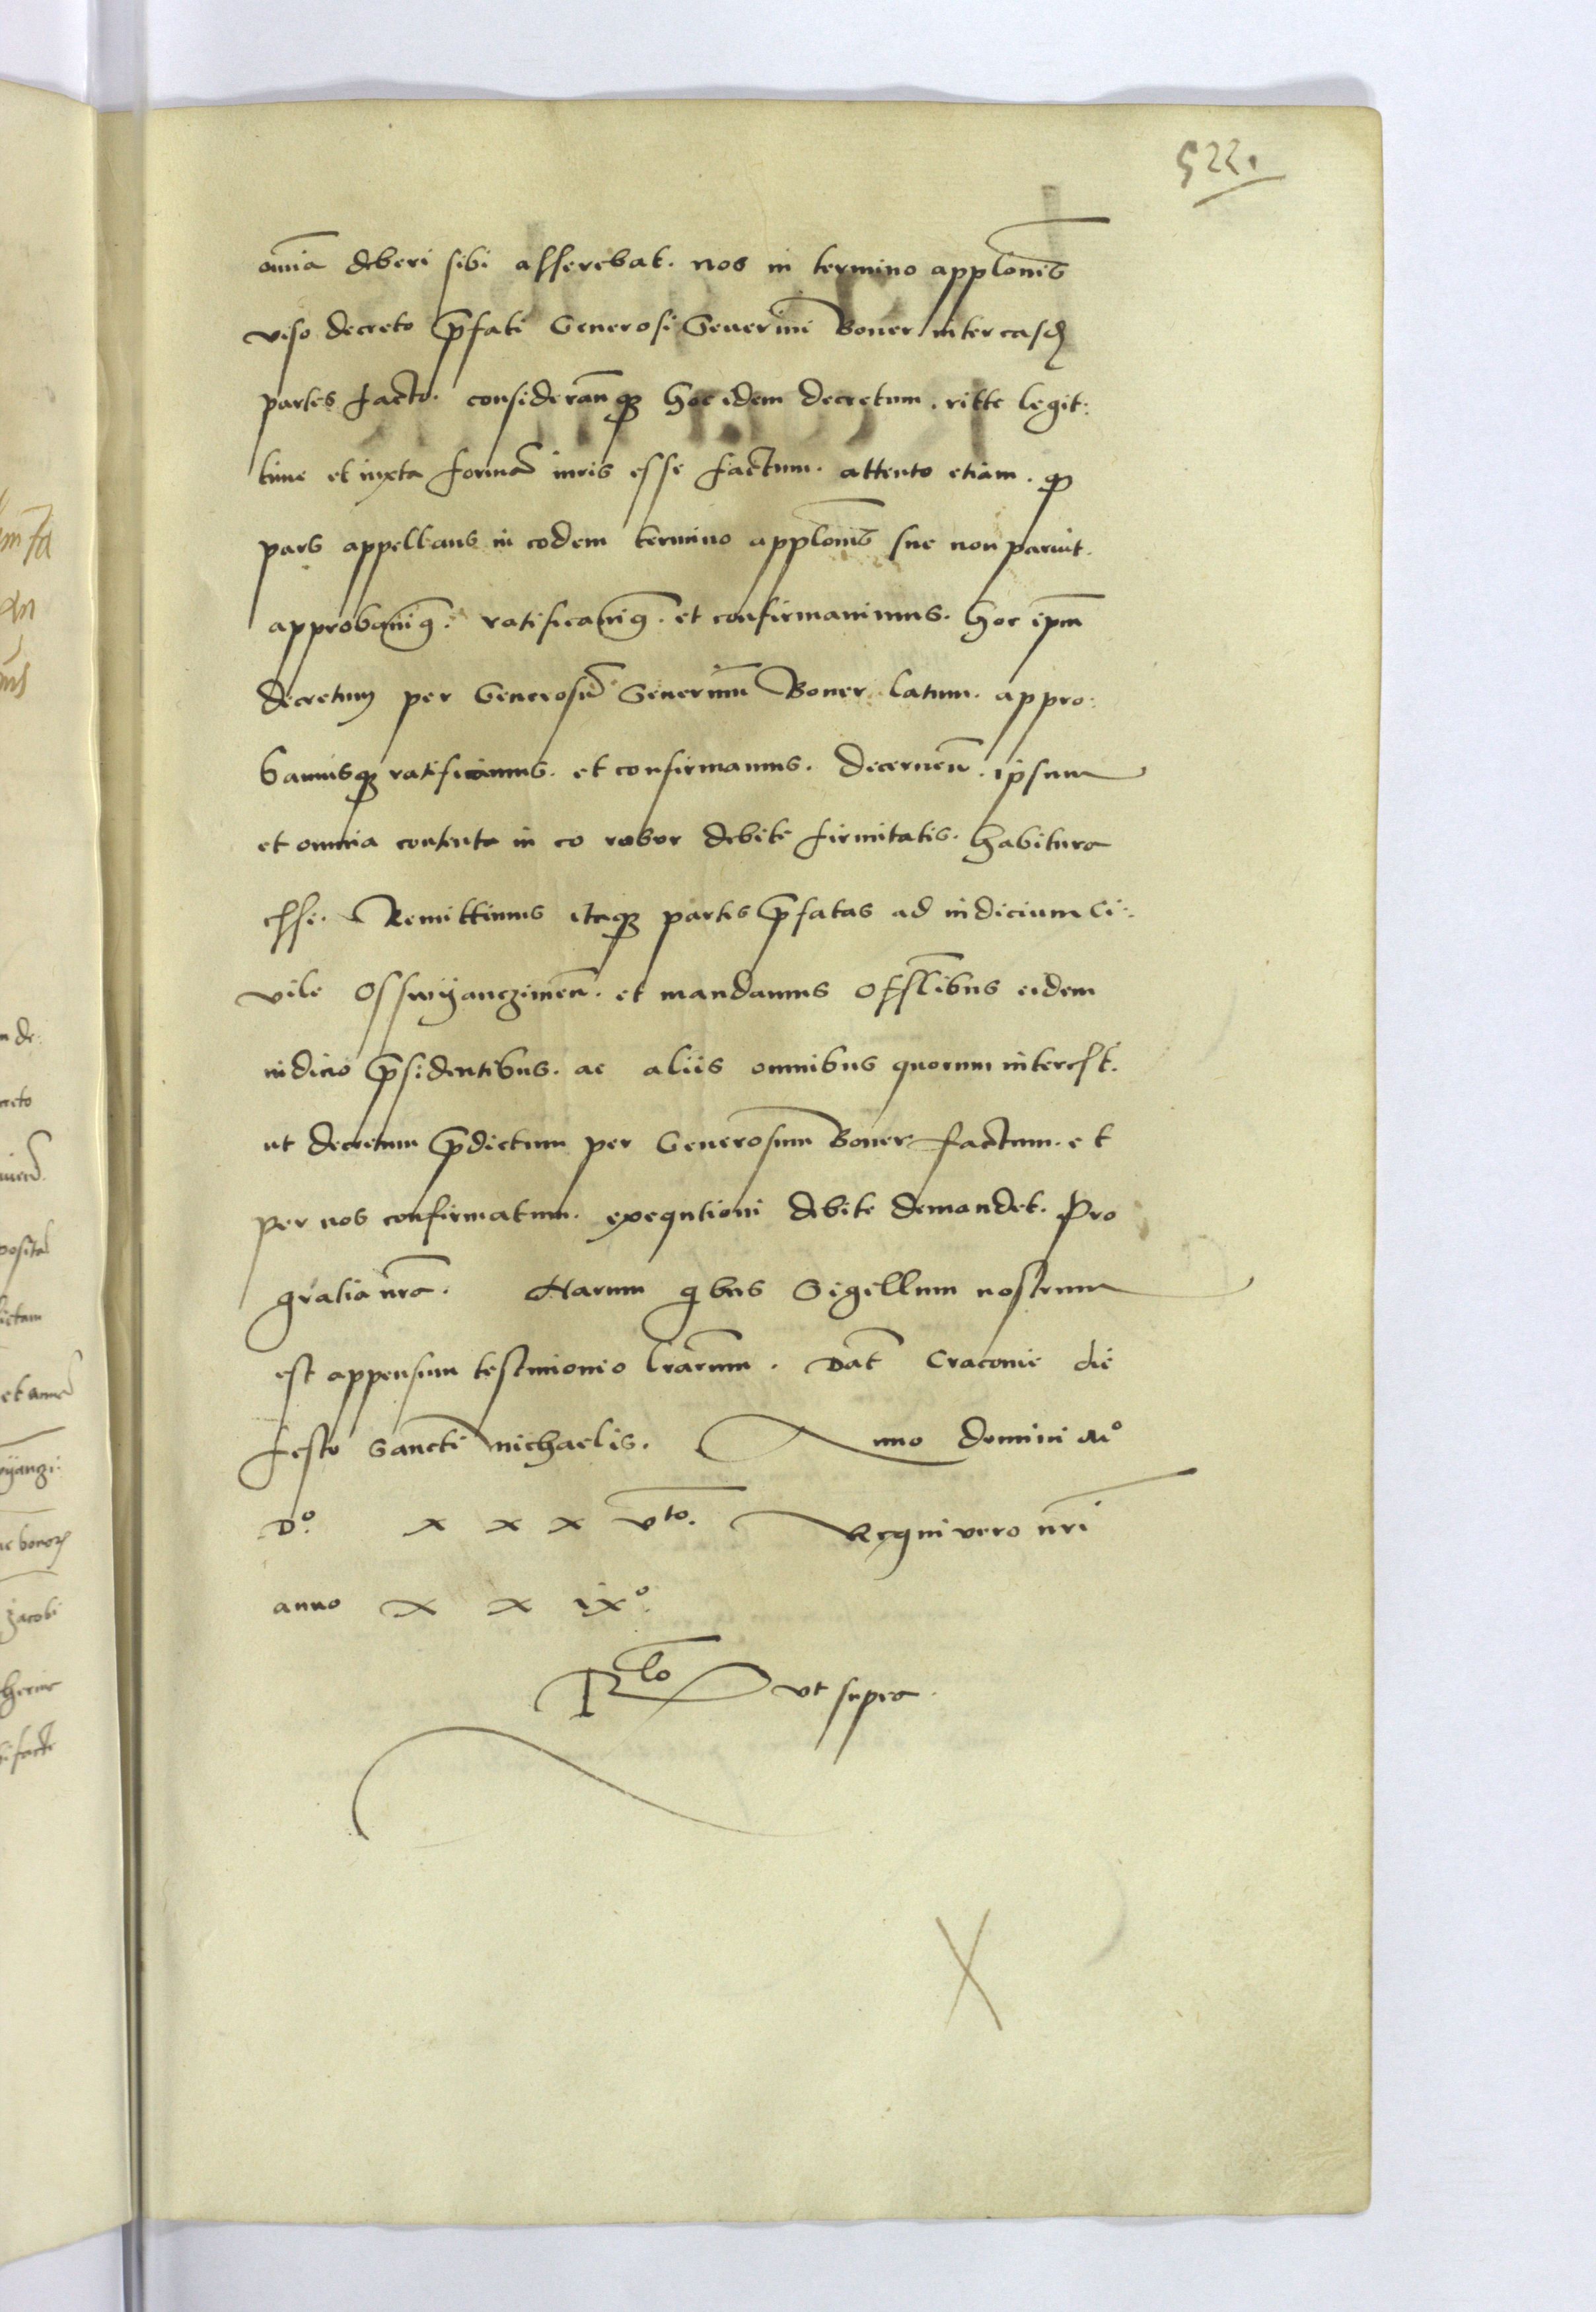 522.
om̄ia deberi sibi asserebat. nos in termino applōnis
viso decreto p̄fati Generosi Seuerini Boner inter easd
partes facto. considerañ q hoc idem decretum. ritte legit:
time et iuxta formā iuris esse factum. attento etiam. q
pars appellans in eodem termino applōnis sue non paruit.
approbauim9. ratificauim9. et confirmauimus. hoc ip̄m
decretum per Generosū Seuerinum Boner latum. appro:
bamusq ratificamus. et confirmamus. decerneñ. ipsum
et omnia contenta in eo robor debite firmitatis. habitura
esse. Remittimus itaq partes p̄fatas ad iudicium Ci:
vile Osswyanczimeñ. et mandamus offſl̄ibus eidem
iudicio p̄sidentibus. ac aliis omnibus quorum interest.
ut decretum p̄dictum per Generosum Boner factum. et
per nos confirmatum. exequtioni debite demandet. Pro
gratia nr̄a. Harum q bus Sigillum nostrum
est appensum testimonio lr̄arum. Dat̄ Cracouie die
festo Sancti Michaelis. Anno domini Mo
Do. x x x vto. Regni vero nr̄i
anno x x ixo.
Rlo ut supra.